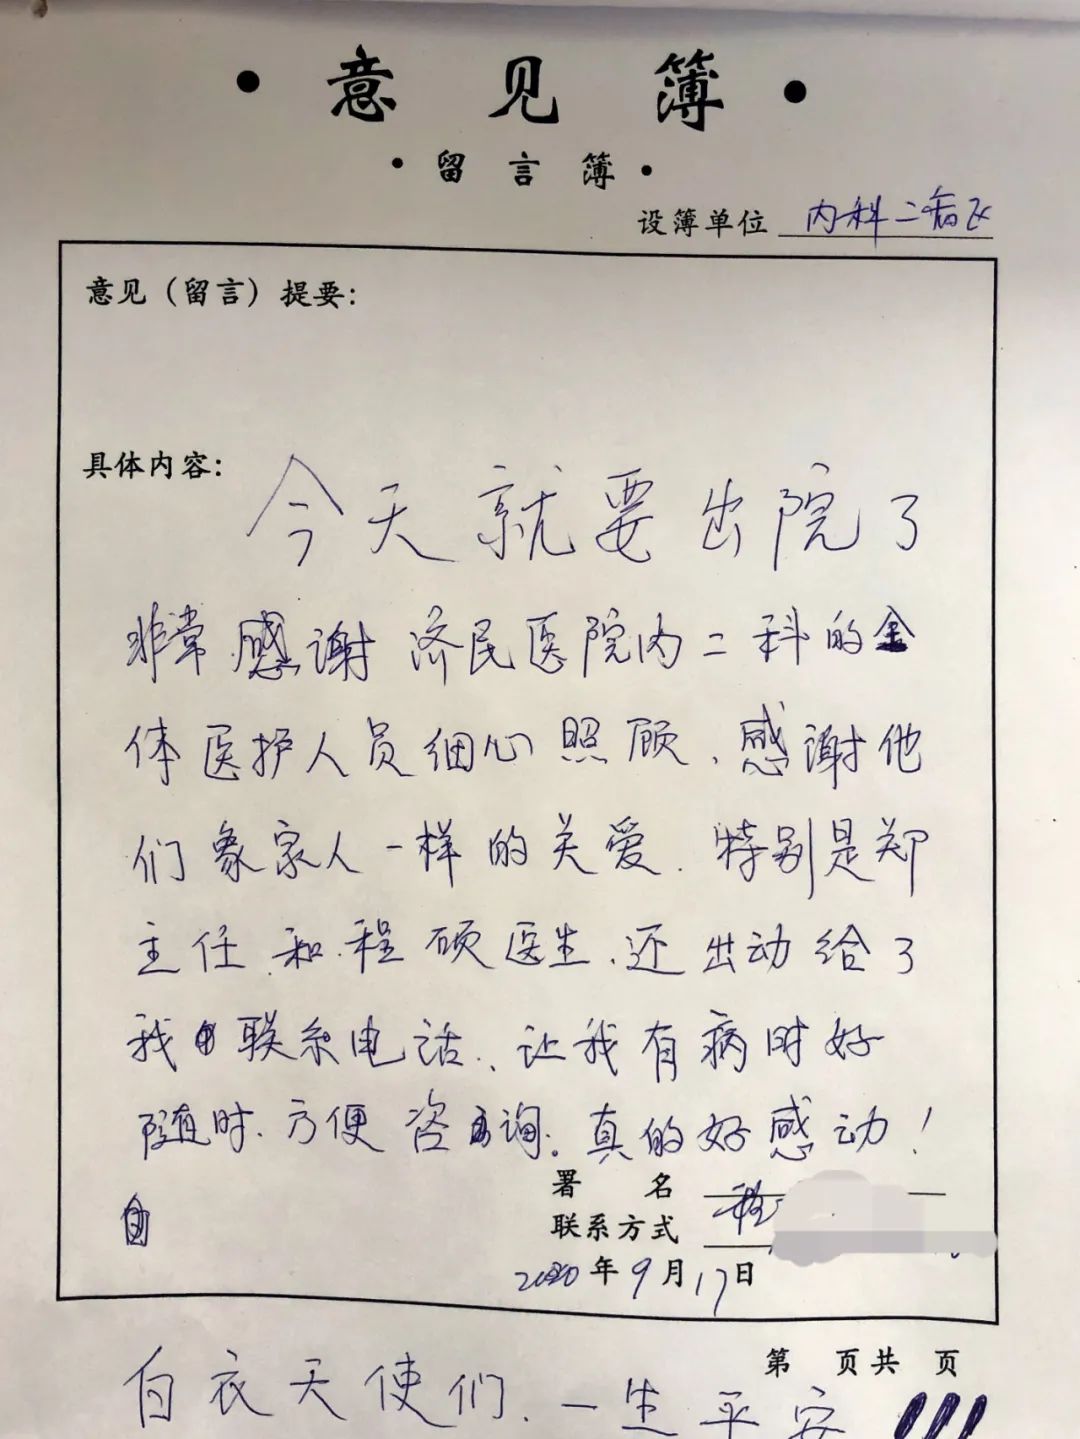 ·意见簿·
·留言簿·
设簿单位 内科二病区
意见（留言）提要：
具体内容：
今天就要出院了
非常感谢济民医院内二科的全
体医护人员细心照顾、感谢他
们象家人一样的关爱.特别是郑
主任、和程硕医生、还出动给了
我联系电话、让我有病时好
随时、方便咨询。真的好感动！
署名 程
联系方式
2020年9月17日
第 页共 页
白衣天使们、一生平安!!!